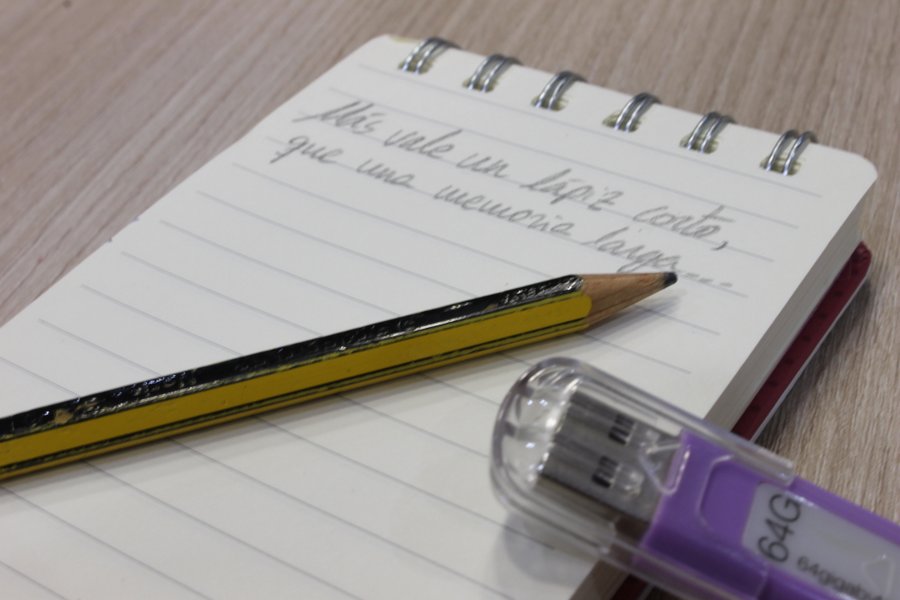 Más vale un lápiz corto,
que una memoria larga...
64G
64gigaby